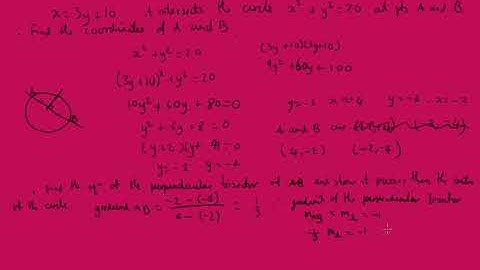 x = 3y + 10 intersects the circle x² + y² = 20 at pts A and B
. Find the coordinates of A and B.
x² + y² = 20
(3y + 10)² + y² = 20
10y² + 60y + 80 = 0
y² + 6y + 8 = 0
(y + 2)(y + 4) = 0
y = -2 y = -4
(3y + 10)(3y + 10)
9y² + 60y + 100
y = -2 x = 4 y = -4 x = -2
A and B are
(4, -2) (-2, -4)
A
B
. Find the eqⁿ of the perpendicular bisector of AB and show it passes thru the centre
of the circle gradient AB = \frac{-2 - (-4)}{4 - (-2)} = \frac{1}{3} ∴ gradient of the perpendicular bisector
× m₂ = -1
⅓ m₂ = -1